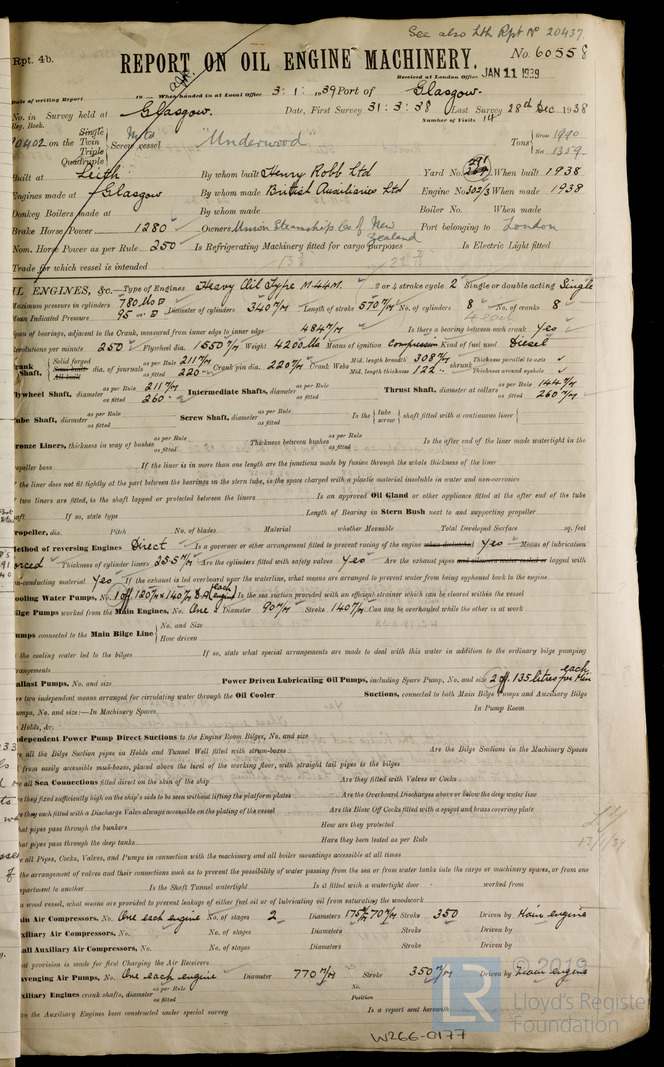 See also Lth Rpt No 20437.
Rpt. 4b.
REPORT ON OIL ENGINE MACHINERY.
No. 60558
Received at London Office JAN 11 1939
Date of writing Report 19 When handed in at Local Office 3. 1. 1939 Port of Glasgow.
No. in Survey held at Glasgow. Date, First Survey 31. 3. 38 Last Survey 28th Dec 1938
Reg. Book. Number of Visits 14
on the Single Twin Triple Quadruple Screw vessel "Underwood" Tons Gross 1990 Net 1359
Built at Leith By whom built Henry Robb Ltd Yard No. 291 When built 1938
Engines made at Glasgow By whom made British Auxiliaries Ltd Engine No. 302/3 When made 1938
Donkey Boilers made at By whom made Boiler No. When made
Brake Horse Power 1280 Owners Union Steamship Co of New Zealand Port belonging to London
Nom. Horse Power as per Rule 250 Is Refrigerating Machinery fitted for cargo purposes Is Electric Light fitted
Trade for which vessel is intended
IL ENGINES, &c. Type of Engines Heavy Oil Type M44M. 2 or 4 stroke cycle 2 Single or double acting Single
Maximum pressure in cylinders 780 lbs □" Diameter of cylinders 340 m/m Length of stroke 570 m/m No. of cylinders 8 No. of cranks 8
Mean Indicated Pressure 95 " □" 4 each
Span of bearings, adjacent to the Crank, measured from inner edge to inner edge 484 m/m Is there a bearing between each crank Yes
Revolutions per minute 250 Flywheel dia. 1550 m/m Weight 4200 lbs Means of ignition Compression Kind of fuel used Diesel
Crank Shaft, Solid forged dia. of journals as per Rule 211 m/m as fitted 220 Crank pin dia. 220 m/m Crank Webs Mid. length breadth 308 m/m Mid. length thickness 122 shrunk Thickness parallel to axis Thickness around eyehole
Flywheel Shaft, diameter as per Rule 211 m/m as fitted 260 Intermediate Shafts, diameter as per Rule as fitted Thrust Shaft, diameter at collars as per Rule 144 m/m as fitted 260 m/m
Tube Shaft, diameter as per Rule as fitted Screw Shaft, diameter as per Rule as fitted Is the tube screw shaft fitted with a continuous liner
ronze Liners, thickness in way of bushes as per Rule as fitted Thickness between bushes as per Rule as fitted Is the after end of the liner made watertight in the
ropeller boss If the liner is in more than one length are the junctions made by fusion through the whole thickness of the liner
f the liner does not fit tightly at the part between the bearings in the stern tube, is the space charged with a plastic material insoluble in water and non-corrosive
f two liners are fitted, is the shaft lapped or protected between the liners Is an approved Oil Gland or other appliance fitted at the after end of the tube
shaft If so, state type Length of Bearing in Stern Bush next to and supporting propeller
ropeller, dia. Pitch No. of blades Material whether Moveable Total Developed Surface sq. feet
ethod of reversing Engines Direct Is a governor or other arrangement fitted to prevent racing of the engine when declutched Yes Means of lubrication
forced Thickness of cylinder liners 25.5 m/m Are the cylinders fitted with safety valves Yes Are the exhaust pipes and silencers water cooled or lagged with
n-conducting material Yes If the exhaust is led overboard near the waterline, what means are arranged to prevent water from being syphoned back to the engine
ooling Water Pumps, No. 1 off 120 m/m x 140 m/m D.A. (each engine) Is the sea suction provided with an efficient strainer which can be cleared within the vessel
ilge Pumps worked from the Main Engines, No. One Diameter 90 m/m Stroke 140 m/m Can one be overhauled while the other is at work
umps connected to the Main Bilge Line No. and Size
How driven
the cooling water led to the bilges If so, state what special arrangements are made to deal with this water in addition to the ordinary bilge pumping
rrangements
allast Pumps, No. and size Power Driven Lubricating Oil Pumps, including Spare Pump, No. and size 2 off. 135 litres per Min each
re two independent means arranged for circulating water through the Oil Cooler Suctions, connected to both Main Bilge Pumps and Auxiliary Bilge
umps, No. and size:—In Machinery Spaces In Pump Room
Holds, &c.
dependent Power Pump Direct Suctions to the Engine Room Bilges, No. and size
re all the Bilge Suction pipes in Holds and Tunnel Well fitted with strum-boxes Are the Bilge Suctions in the Machinery Spaces
from easily accessible mud-boxes, placed above the level of the working floor, with straight tail pipes to the bilges
re all Sea Connections fitted direct on the skin of the ship Are they fitted with Valves or Cocks
re they fixed sufficiently high on the ship's side to be seen without lifting the platform plates Are the Overboard Discharges above or below the deep water line
re they each fitted with a Discharge Valve always accessible on the plating of the vessel Are the Blow Off Cocks fitted with a spigot and brass covering plate
hat pipes pass through the bunkers How are they protected
hat pipes pass through the deep tanks Have they been tested as per Rule
re all Pipes, Cocks, Valves, and Pumps in connection with the machinery and all boiler mountings accessible at all times
the arrangement of valves and their connections such as to prevent the possibility of water passing from the sea or from water tanks into the cargo or machinery spaces, or from one
partment to another Is the Shaft Tunnel watertight Is it fitted with a watertight door worked from
a wood vessel, what means are provided to prevent leakage of either fuel oil or lubricating oil from saturating the woodwork
ain Air Compressors, No. One each engine No. of stages 2 Diameters 175 m/m 70 m/m Stroke 350 Driven by Main engine
uxiliary Air Compressors, No. No. of stages Diameters Stroke Driven by
mall Auxiliary Air Compressors, No. No. of stages Diameters Stroke Driven by
hat provision is made for first Charging the Air Receivers
cavenging Air Pumps, No. One each engine Diameter 770 m/m Stroke 350 m/m Driven by Main engine
uxiliary Engines crank shafts, diameter as per Rule as fitted No. Position
ave the Auxiliary Engines been constructed under special survey Is a report sent herewith
W266-0177
© 2019
LR
Lloyd's Register
Foundation